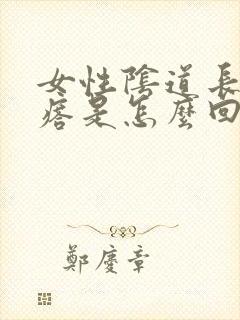 女性陰道長
痞是怎麼回
鄭慶章